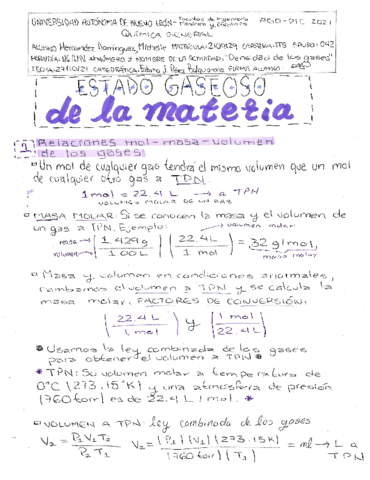 UNIVERSIDAD AUTÓNOMA DE NUEVO LEÓN - Facultad de Ingeniería Mecánica y Eléctrica AGO-DIC 2021
QUÍMICA GENERAL
ALUMNO: Hernandez Dominguez, Michelle MATRÍCULA: CARRERA: ITS GRUPO: 042
NÚMERO Y NOMBRE DE LA ACTIVIDAD: "Densidad de los gases"
FECHA: CATEDRÁTICA: FIRMA ALUMNO:
ESTADO GASEOSO
de la materia
1 Relaciones mol-masa-volumen
de los gases
Un mol de cualquier gas tendrá el mismo volumen que un mol
de cualquier otro gas a TPN
1 mol = 22.4 L → a TPN
VOLUMEN MOLAR DE UN GAS
MASA MOLAR: Si se conocen la masa y el volumen de
un gas a TPN. Ejemplo: → volumen molar
masa → (1.429g / 1.00L) (22.4L / 1 mol) = 32 g/mol,
volumen → masa molar
Masa y volumen en condiciones anormales,
cambiamos el volumen a TPN y se calcula la
masa molar. FACTORES DE CONVERSIÓN:
(22.4L / 1 mol) y (1 mol / 22.4L)
Usamos la ley combinada de los gases
para obtener el volumen a TPN
* TPN: Su volumen molar a temperatura de
0°C (273.15°K) y una atmosfera de presión
(760 torr) es de 22.4 L/1 mol. *
VOLUMEN A TPN: ley combinada de los gases
V₂ = P₁V₁T₂ / P₂T₁ V₂ = (P₁)(V₁)(273.15K) / (760 torr)(T₁) = ml → L a
TPN